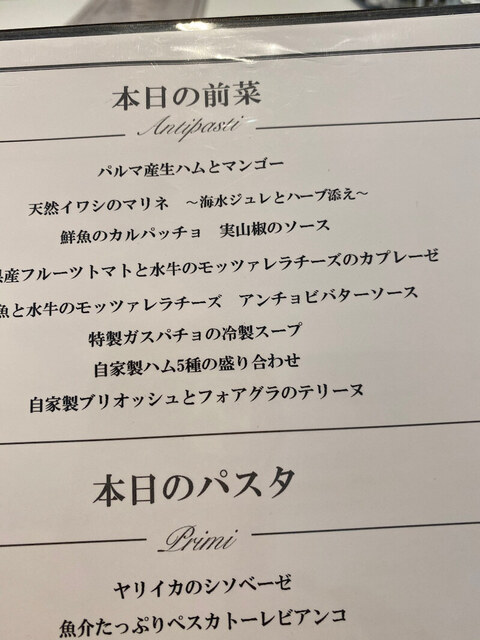 本日の前菜
Antipasti
パルマ産生ハムとマンゴー
天然イワシのマリネ ～海水ジュレとハーブ添え～
鮮魚のカルパッチョ 実山椒のソース
産フルーツトマトと水牛のモッツァレラチーズのカプレーゼ
魚と水牛のモッツァレラチーズ アンチョビバターソース
特製ガスパチョの冷製スープ
自家製ハム5種の盛り合わせ
自家製ブリオッシュとフォアグラのテリーヌ
本日のパスタ
Primi
ヤリイカのシソベーゼ
魚介たっぷりペスカトーレビアンコ